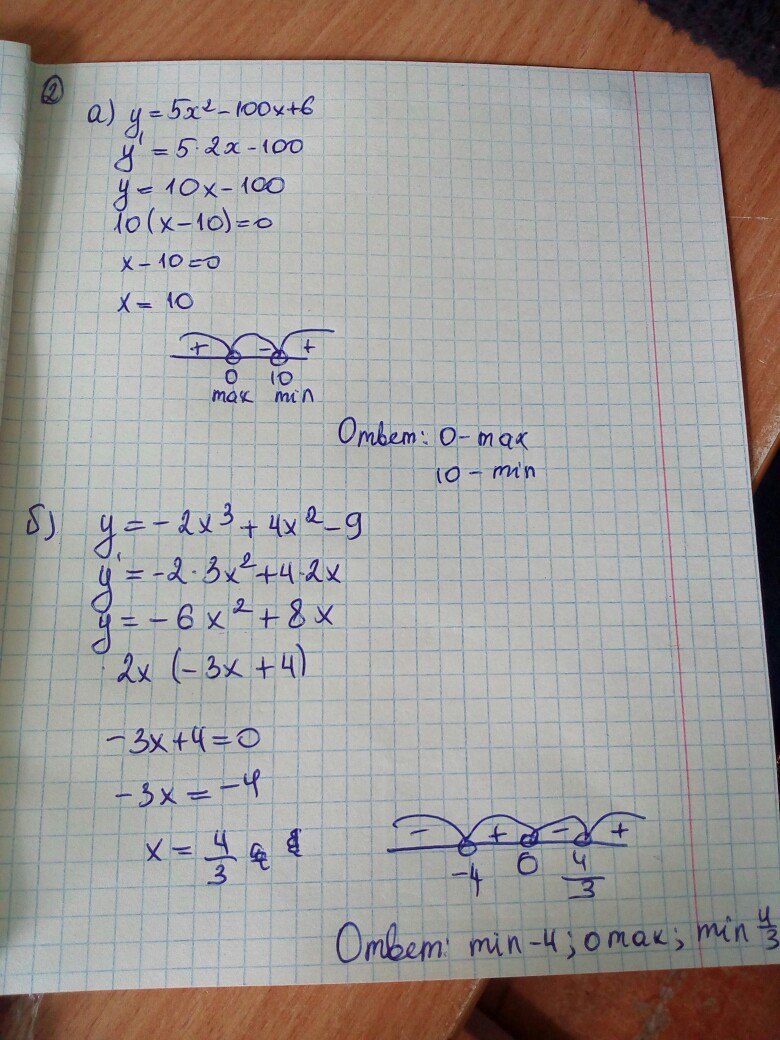 2
а) y = 5x² - 100x + 6
y' = 5·2x - 100
y = 10x - 100
10(x - 10) = 0
x - 10 = 0
x = 10
+ - +
0 10
max min
Ответ: 0 - max
10 - min
б) y = -2x³ + 4x² - 9
y' = -2·3x² + 4·2x
y = -6x² + 8x
2x (-3x + 4)
-3x + 4 = 0
-3x = -4
x = 4/3
- + - +
-4 0 4/3
Ответ: min -4; 0 max; min 4/3